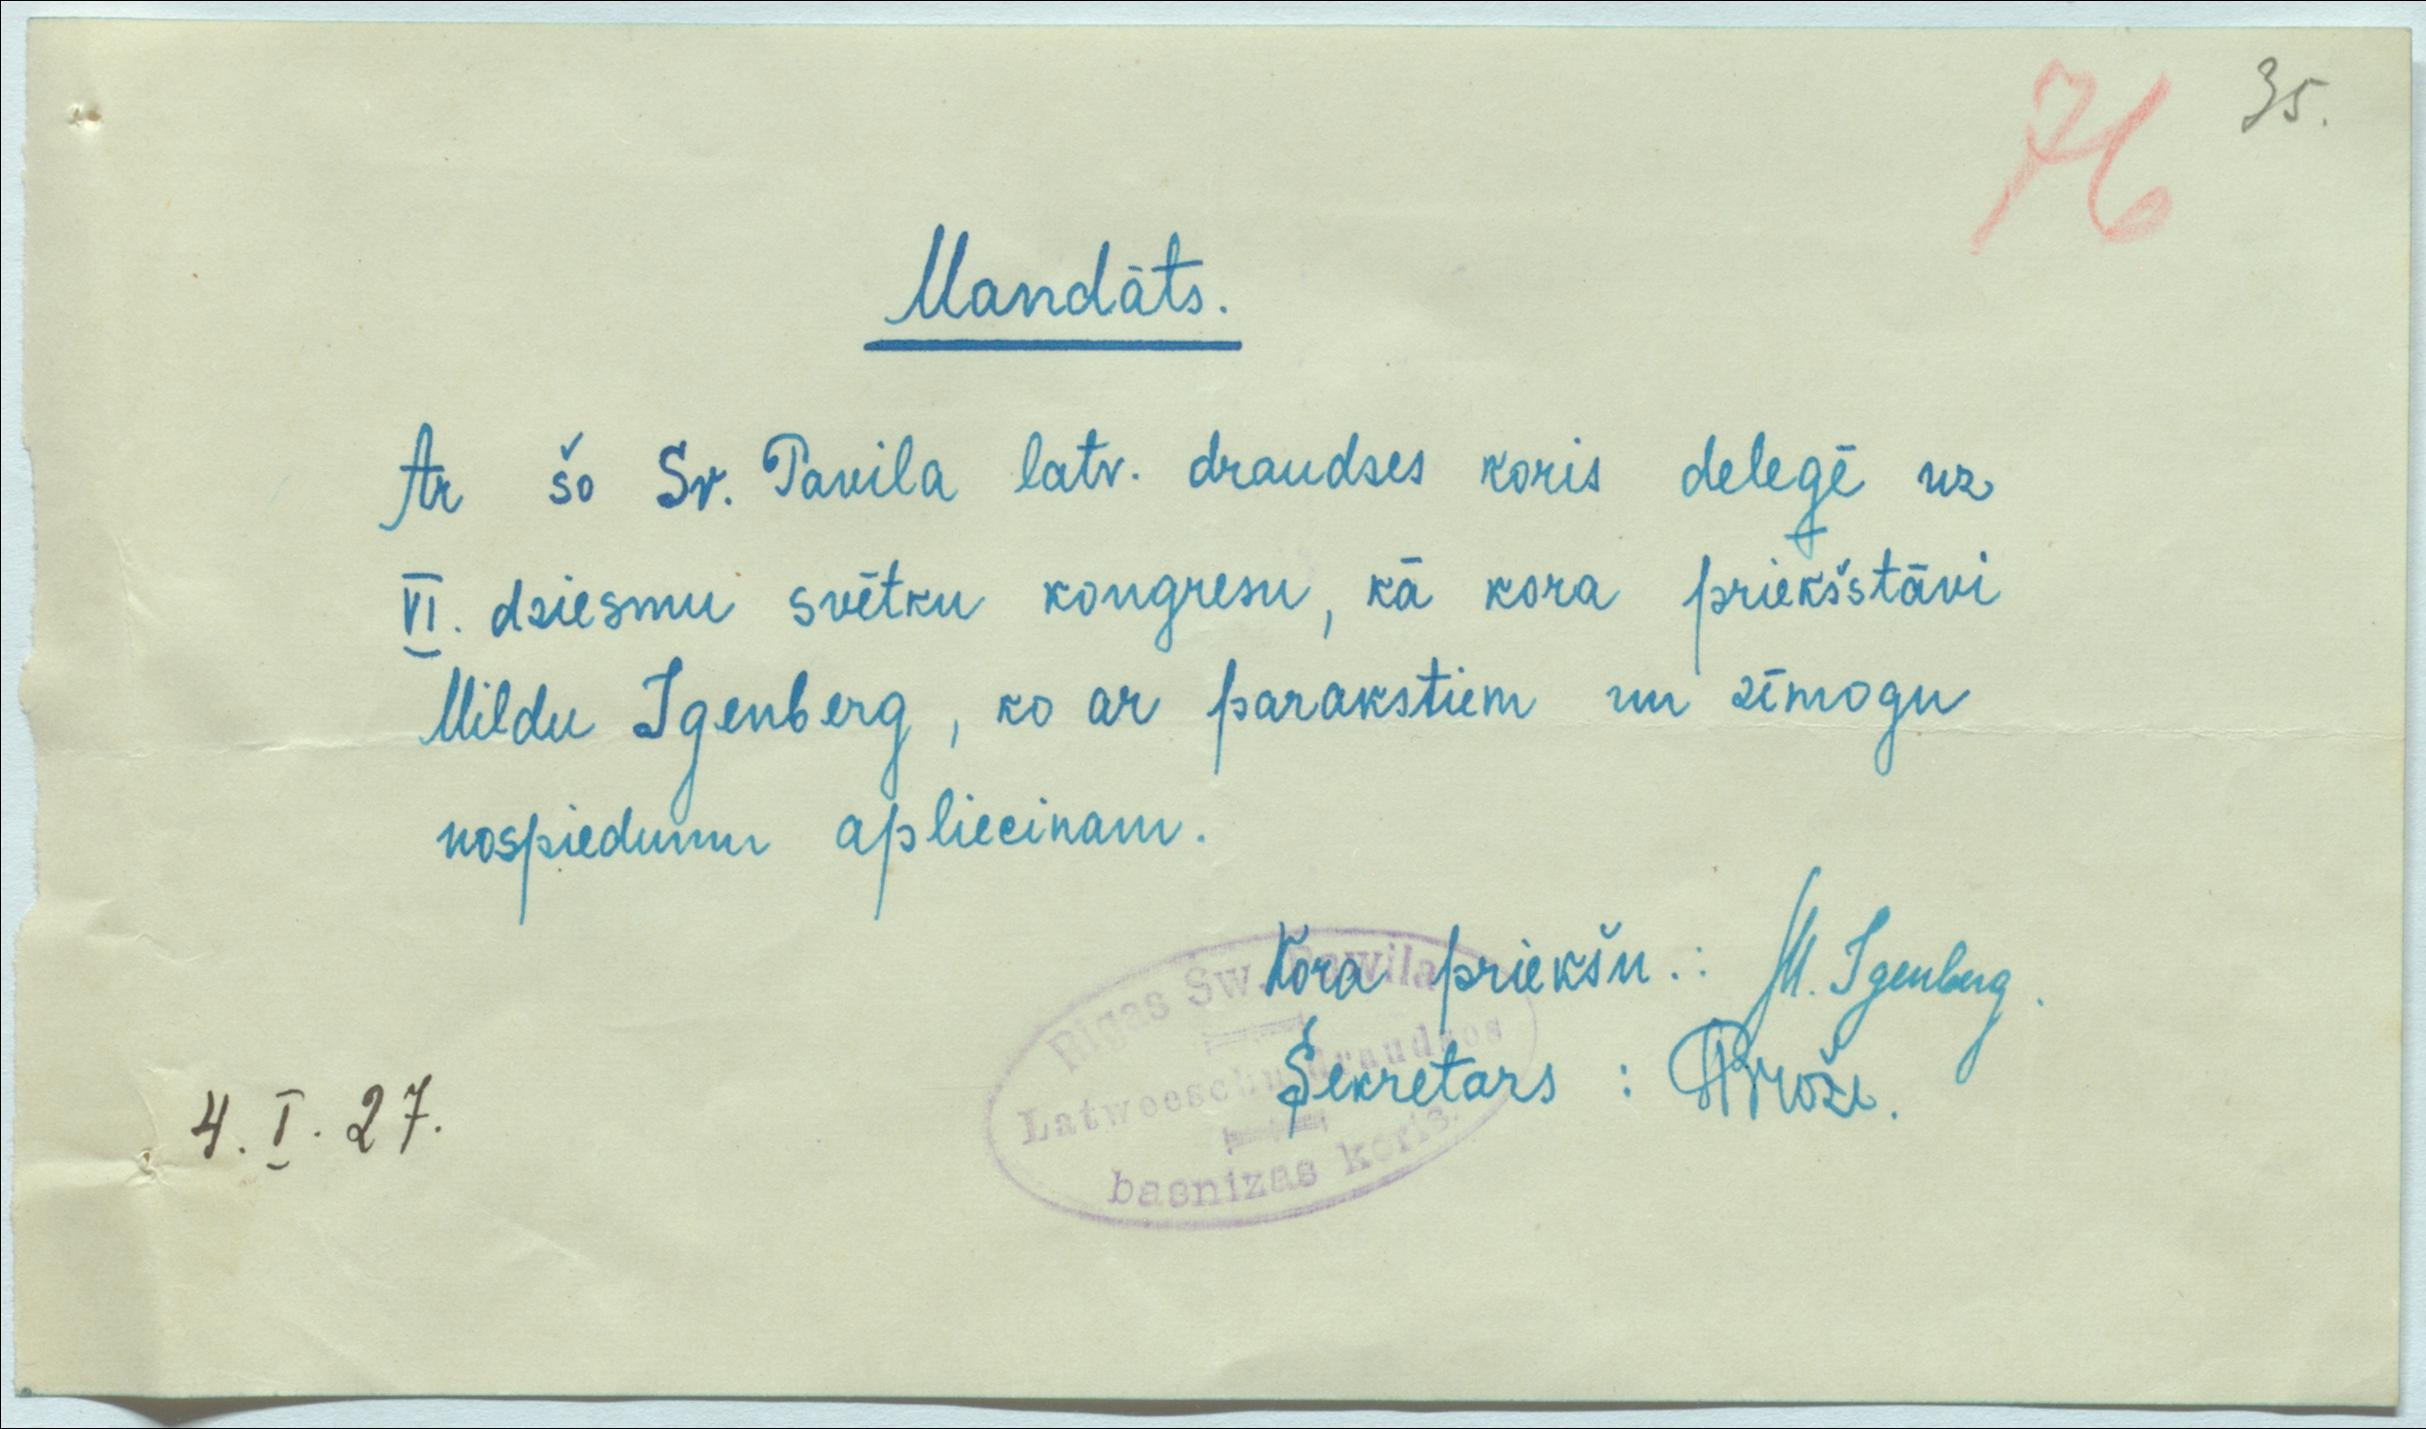 76 35.
Mandāts.
Ar šo Sv. Pavila latv. draudzes koris deleģē uz
VI. dziesmu svētku kongresu, kā kora priekšstāvi
Mildu Igenberg, ko ar parakstiem un zīmogu
nospiedumu apliecinam.
Kora priekšn.: M. Igenberg.
Sekretars :
4. I. 27.
Rigas Sw. Pawila
Latweeschu draudzes
basnizas koris.